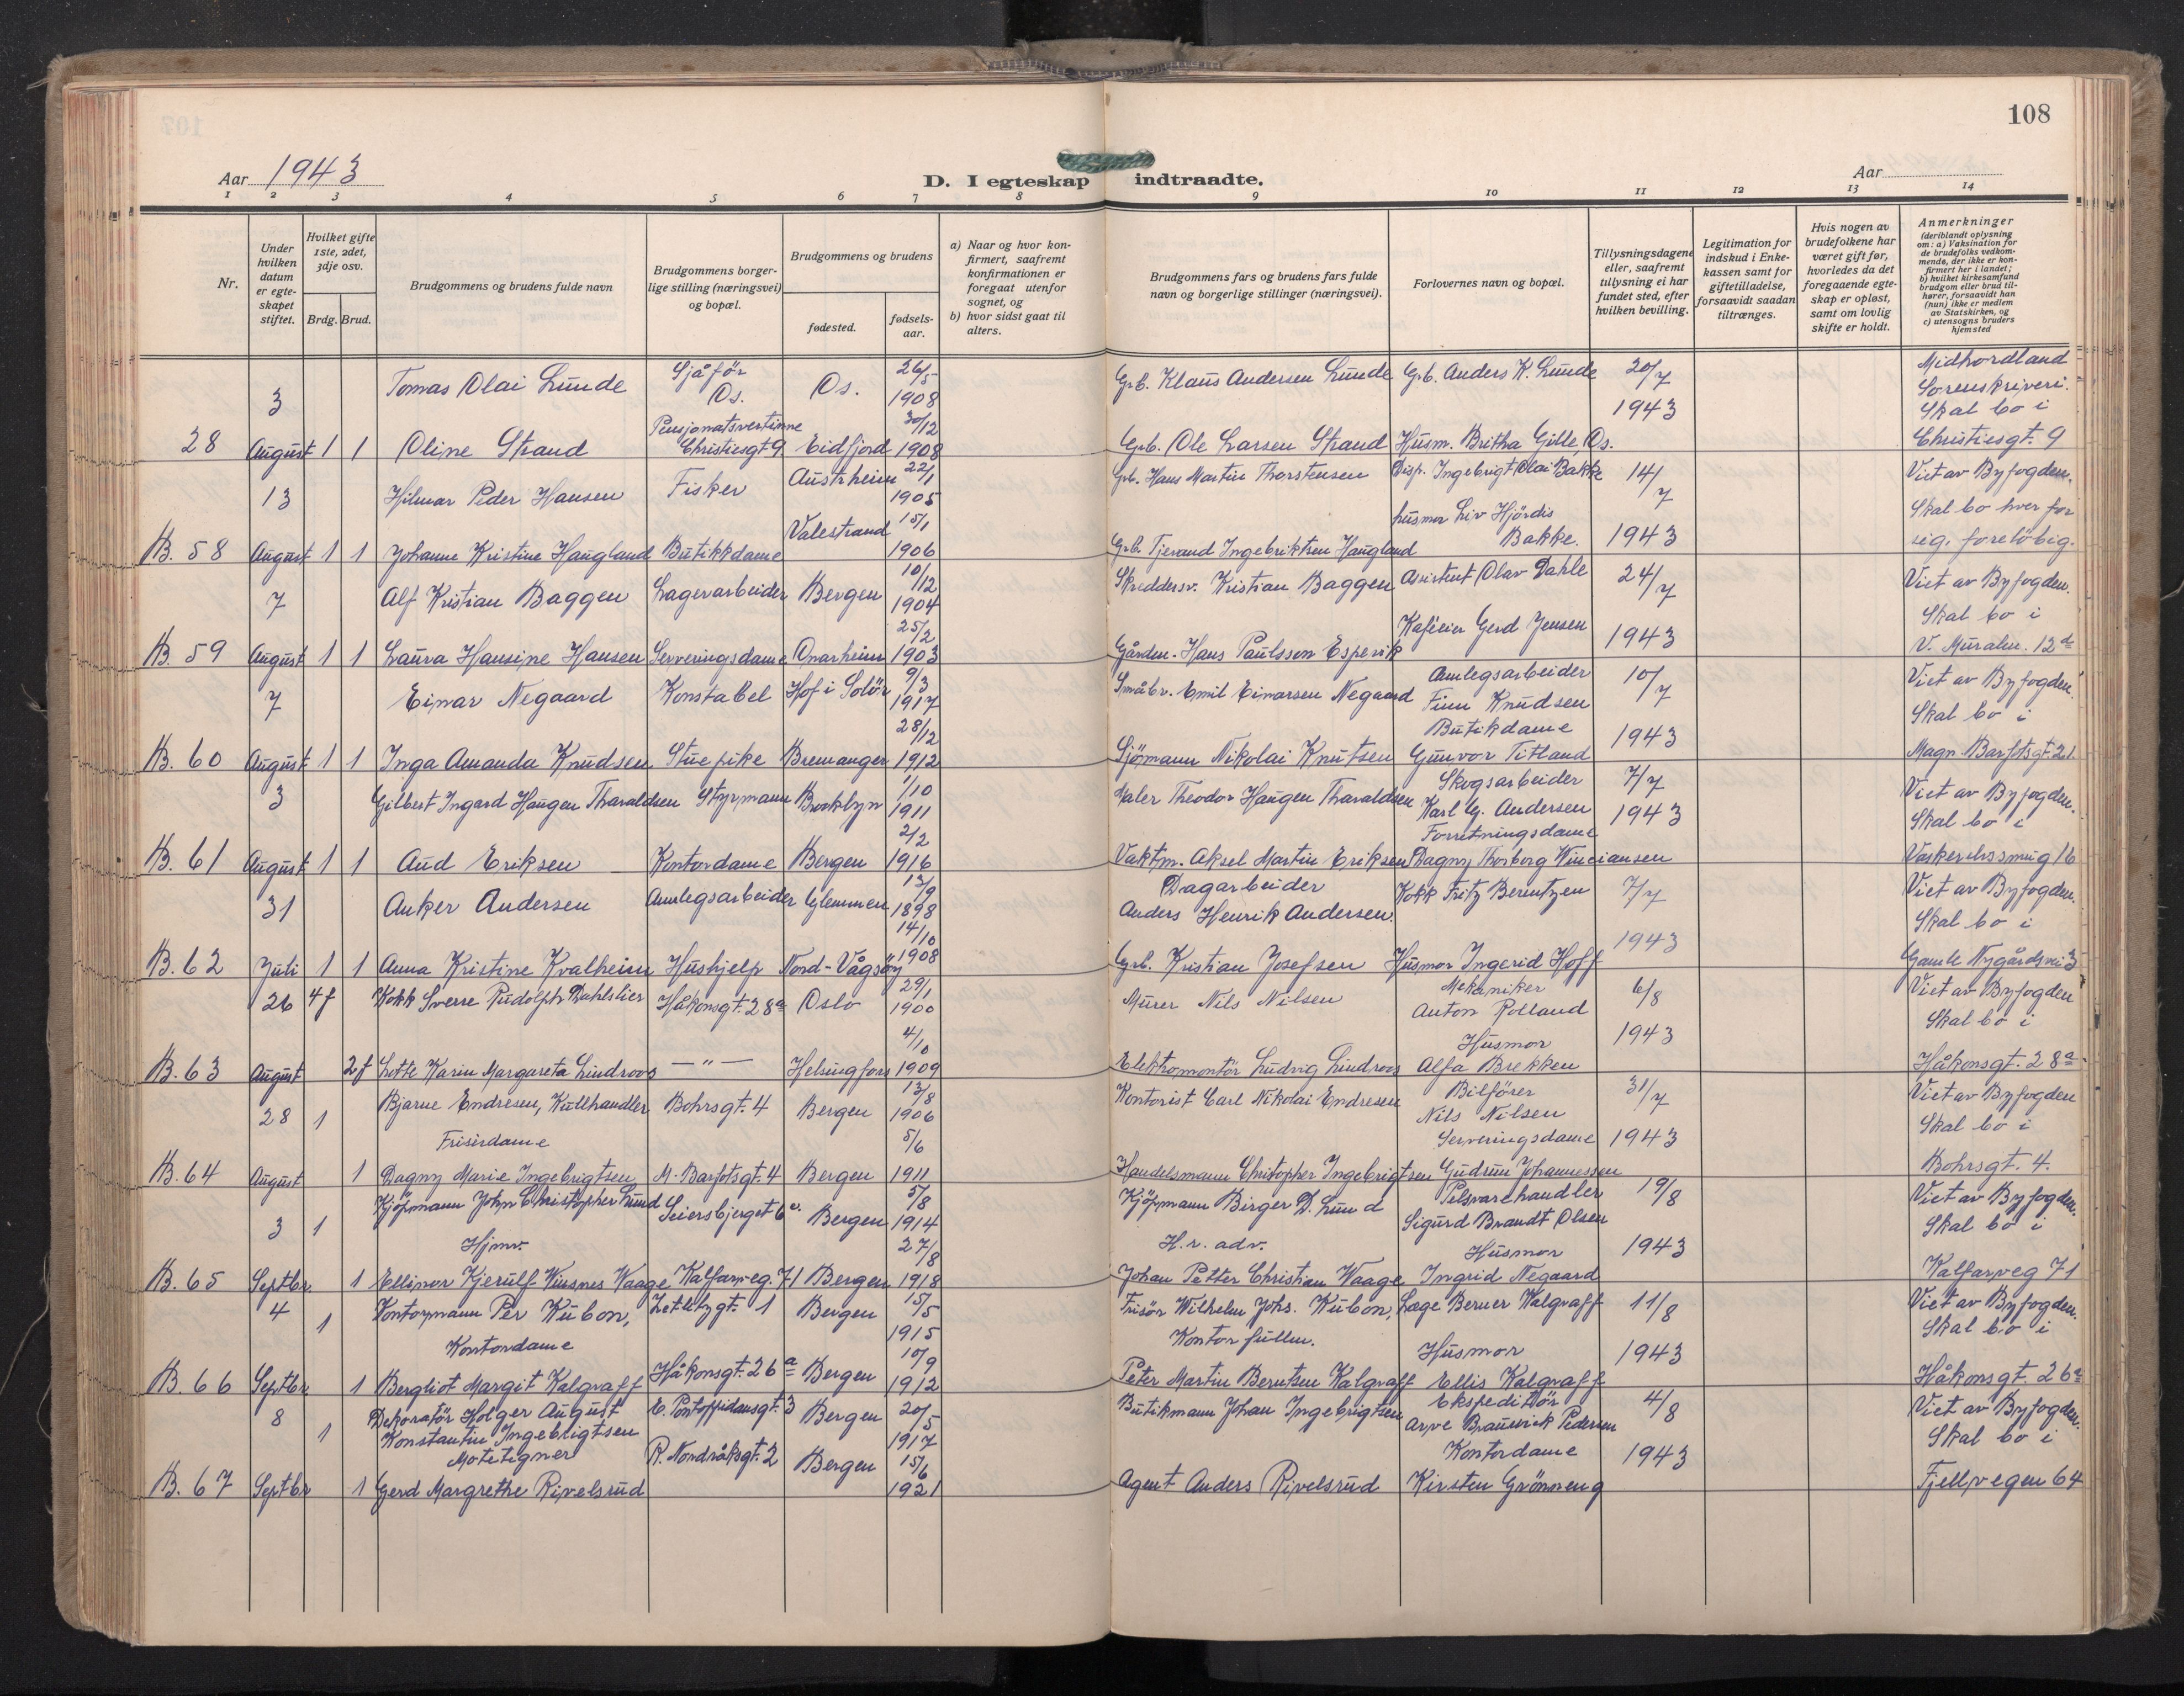 108
Aar 1943
D. I egteskap indtraadte.
Aar
1 2 3 4 5 6 7 8 9 10 11 12 13 14
Nr.
Under hvilken datum er egteskapet stiftet.
Hvilket gifte 1ste, 2det, 3dje osv.
Brdg. Brud.
Brudgommens og brudens fulde navn
Brudgommens borgerlige stilling (næringsvei) og bopæl.
Brudgommens og brudens
fødested.
fødselsaar.
a) Naar og hvor konfirmert, saafremt konfirmationen er foregaat utenfor sognet, og
b) hvor sidst gaat til alters.
Brudgommens fars og brudens fars fulde navn og borgerlige stillinger (næringsvei).
Forlovernes navn og bopæl.
Tillysningsdagene eller, saafremt tillysning ei har fundet sted, efter hvilken bevilling.
Legitimation for indskud i Enkekassen samt for giftetilladelse, forsaavidt saadan tiltrænges.
Hvis nogen av brudefolkene har været gift før, hvorledes da det foregaaende egteskap er opløst, samt om lovlig skifte er holdt.
Anmerkninger (deriblandt oplysning om: a) Vaksination for de brudefolks vedkommende, der ikke er konfirmert her i landet; b) hvilket kirkesamfund brudgom eller brud tilhører, forsaavidt han (hun) ikke er medlem av Statskirken, og c) utensogns bruders hjemsted
3 Tomas Olai Lunde Sjåfør Os. Os. 26/5 1908 Grb. Klaus Andersen Lunde Grb. Anders K. Lunde 20/7 1943 Midhordland Sorenskriveri. Skal bo i
28 August 1 1 Oline Strand Pensjonatsvertinne Christiesgt 9 Eidfjord 30/12 1908 Grb. Ole Larsen Strand Husm. Britha Gille, Os. Christiesgt. 9
13 Hilmar Peder Hansen Fisker Austrheim 22/1 1905 Grb. Hans Martin Thorstensen Disp. Ingebrigt Olai Bakke 14/7 Viet av Byfogden. Skal bo hver for
B. 58 August 1 1 Johanne Kristine Haugland Butikkdame Valestrand 15/1 1906 Grb. Tjerand Ingebriktsen Haugland husmor Liv Hjördis Bakke. 1943 sig, foreløbig.
7 Alf Kristian Baggen Lagerarbeider Bergen 10/12 1904 Skreddersv. Kristian Baggen Assistent Olav Dahle 24/7 Viet av Byfogden. Skal bo i
B. 59 August 1 1 Laura Hansine Hansen Serveringsdame Onarheim 25/2 1903 Gården. Hans Paulsson Espevik Kaféeier Gerd Jensen 1943 V. Muralm. 12d
7 Einar Negaard Konstabel Hof i Solør 9/3 1917 Småbr. Emil Einarsen Negaard Anlegsarbeider Finn Knudsen 10/7 Viet av Byfogden. Skal bo i
B. 60 August 1 1 Inga Amanda Knudsen Stuepike Bremanger 28/12 1912 Sjömann Nikolai Knutsen Butikdame Gunvor Titland 1943 Magn. Barfotsgt. 21.
3 Gilbert Ingard Haugen Tharaldsen Styrmann Brooklyn 1/10 1911 Maler Theodor Haugen Tharaldsen Skogsarbeider Karl G. Andersen 7/7 1943 Viet av Byfogden. Skal bo i
B. 61 August 1 1 Aud Eriksen Kontordame Bergen 2/2 1916 Vaktm. Aksel Martin Eriksen Forretningsdame Dagny Thorborg Winciansen Vaskerelvssmug 16
31 Anker Andersen Anlegsarbeider Glemmen 13/9 1898 Dagarbeider Anders Henrik Andersen. Kokk Fritz Berentzen 7/7 Viet av Byfogden. Skal bo i
B. 62 Juli 1 1 Anna Kristine Kvalheim Hushjelp Nord-Vågsöy 14/10 1908 Grb. Kristian Josefsen Husmor Ingerid Hoff 1943 Gamle Nygårdsvei 3
26 4f Kokk Sverre Rudolph Dahlslier Håkonsgt. 28a Oslo 29/1 1900 Murer Nils Nilsen Mekaniker Anton Rolland 6/8 Viet av Byfogden Skal bo i
B. 63 August 2f Lotte Karin Margareta Lindroos — " — Helsingfors 4/10 1909 Elektromontör Ludvig Lindroos Husmor Alfa Brekken 1943 Håkonsgt. 28a
28 1 Bjarne Endresen, Kullhandler Bohrsgt. 4 Bergen 13/8 1906 Kontorist Carl Nikolai Endresen Bilförer Nils Nilsen 31/7 Viet av Byfogden Skal bo i
B. 64 August 1 Frisirdame Dagny Marie Ingebrigtsen M. Barfotsgt. 4 Bergen 5/6 1911 Handelsmann Christopher Ingebrigtsen Serveringsdame Gudrun Johannessen 1943 Bohrsgt. 4.
3 1 Kjöpmann John Christopher Lund Seiersbjerget 6 Bergen 5/8 1914 Kjöpmann Birger D. Lund Pelsvarehandler Sigurd Brandt Olsen 19/8 Viet av Byfogden. Skal bo i
B. 65 Septbr. 1 Hjmv. Ellinor Kjerulf Wusnes Waage Kalfarveg. 71 Bergen 27/8 1918 H.r. adv. Johan Petter Christian Waage Husmor Ingrid Negaard 1943 Kalfarveg 71
4 1 Kontormann Per Kubon, Zetlitzgt. 1 Bergen 15/5 1915 Frisör Wilhelm Johs. Kubon, Lage Berner Kalgraff 11/8 Viet av Byfogden. Skal bo i
B. 66 Septbr. 1 Kontordame Bergliot Margit Kalgraff Håkonsgt. 26a Bergen 10/9 1912 Kontorfullm. Peter Martin Berntsen Kalgraff Husmor Ellis Kalgraff 1943 Håkonsgt. 26a
8 1 Dekoratör Holger August Konstantin Ingebrigtsen E. Pontoppidansgt. 3 Bergen 20/5 1917 Butikmann Johan Ingebrigtsen Ekspeditör Arve Brauswick Pedersen 4/8 Viet av Byfogden. Skal bo i
B. 67 Septbr 1 Motetegner Gerd Margrethe Rivelsrud R. Nordråksgt. 2 Bergen 15/6 1921 Agent Anders Rivelsrud Kontordame Kirsten Grönneng 1943 Fjellvegen 64